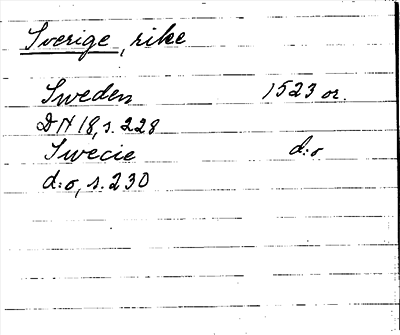 Sverige, rike
Sweden 1523 or.
DN 18, s. 228
Swecie d:o
d:o, s. 230